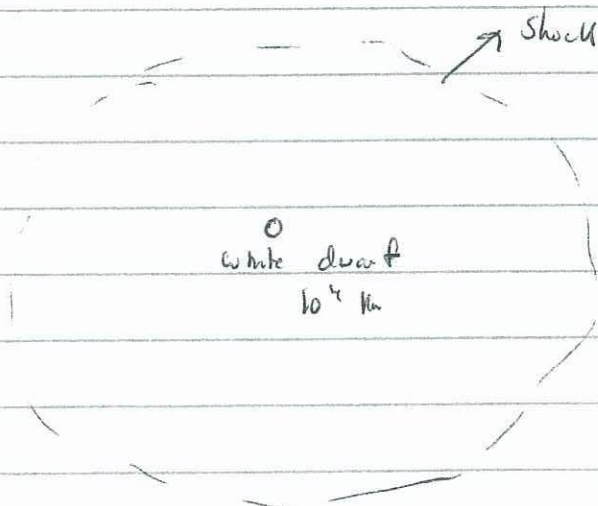 Shock
white dwarf
10⁴ km